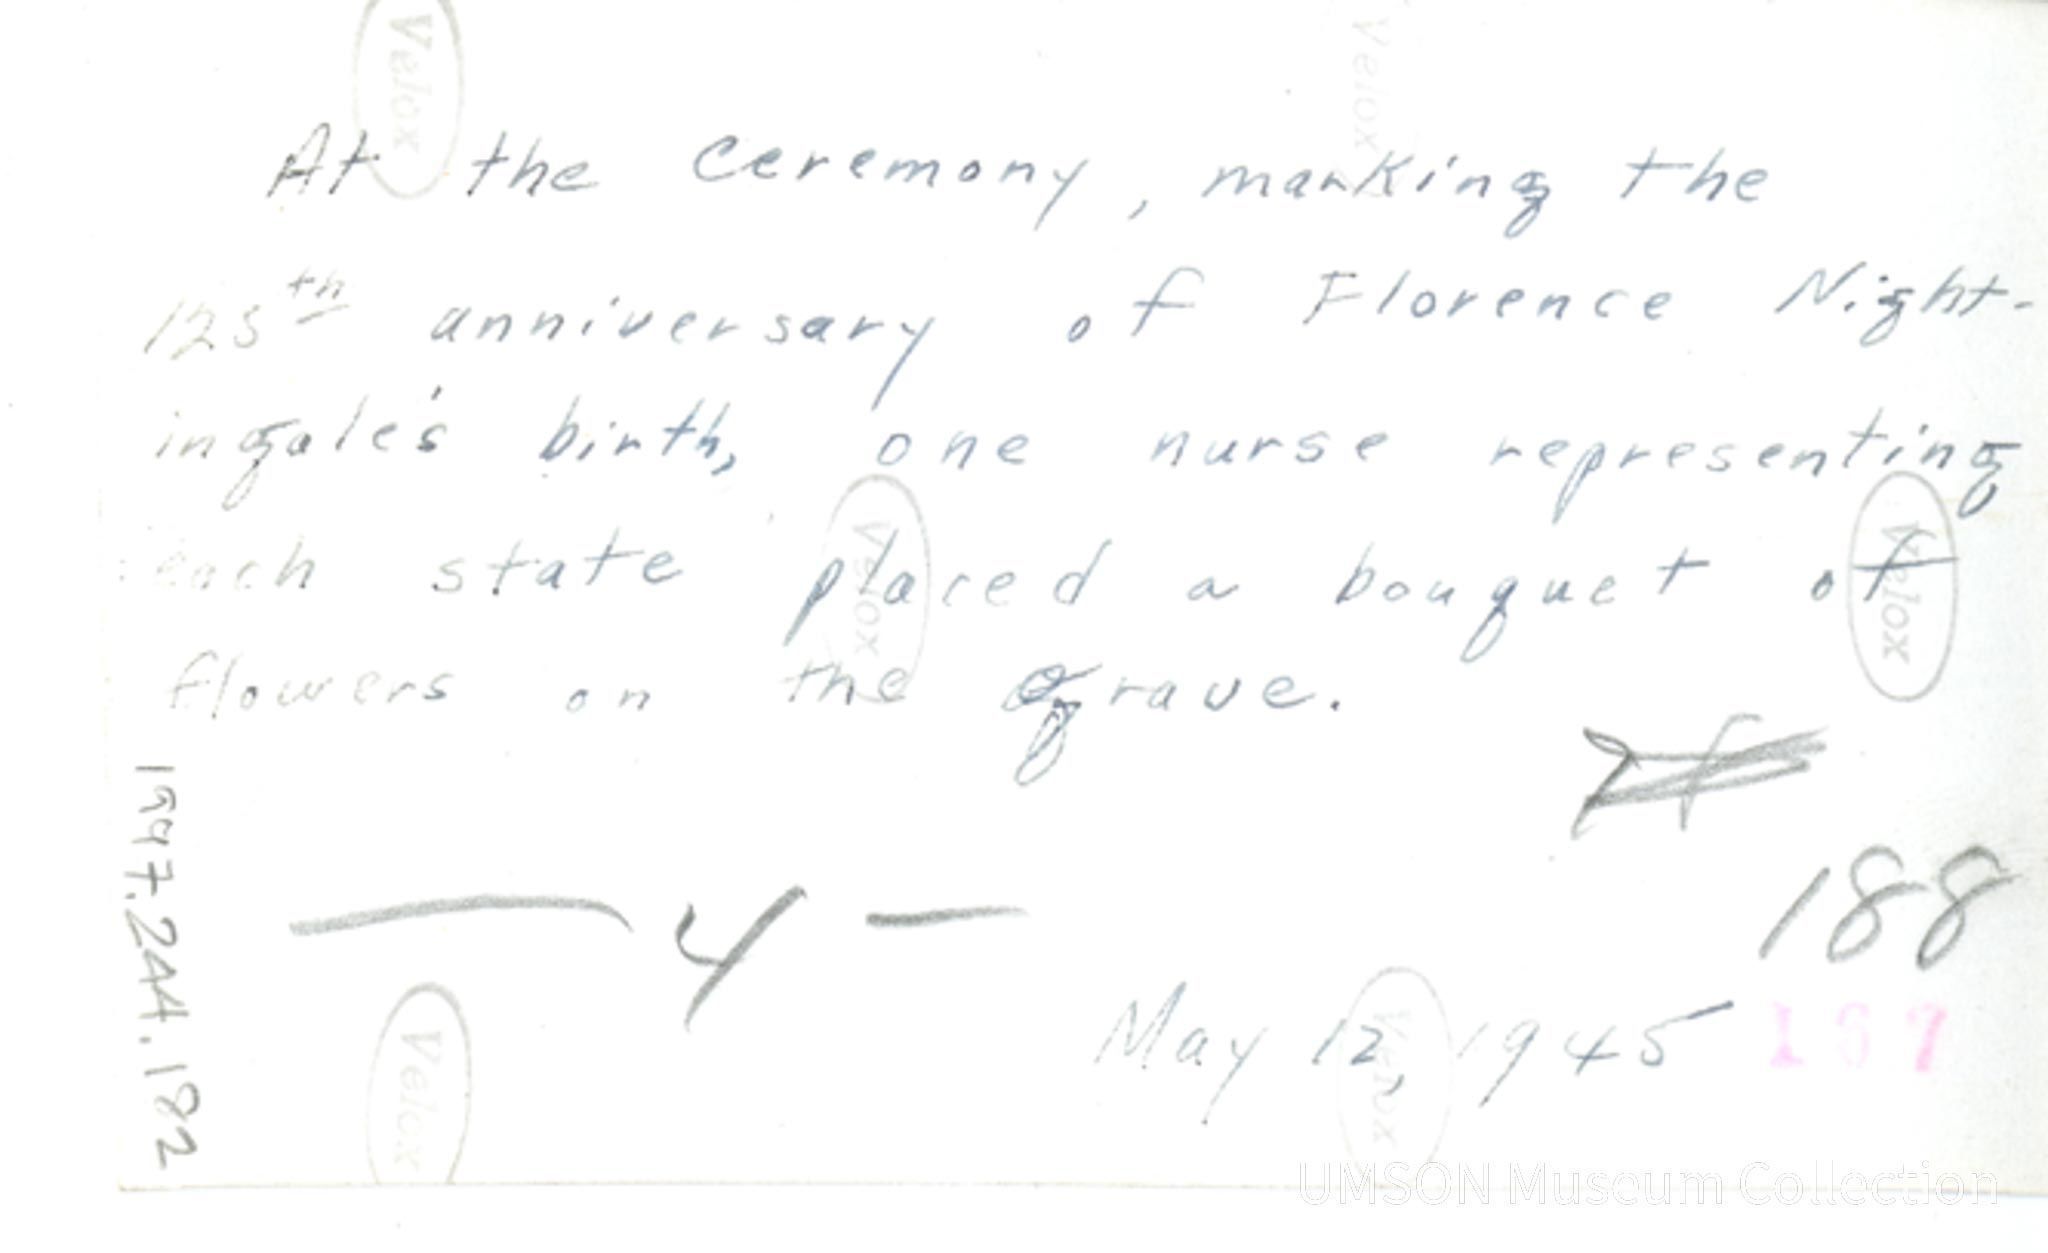 Velox
Velox
At the Ceremony, marking the
125th anniversary of Florence Night-
ingale's birth, one nurse representing
each state placed a bouquet of
Velox
Velox
flowers on the grave.
188
4
May 12, 1945
167
1997.244.182
Velox
Velox
UMSON Museum Collection